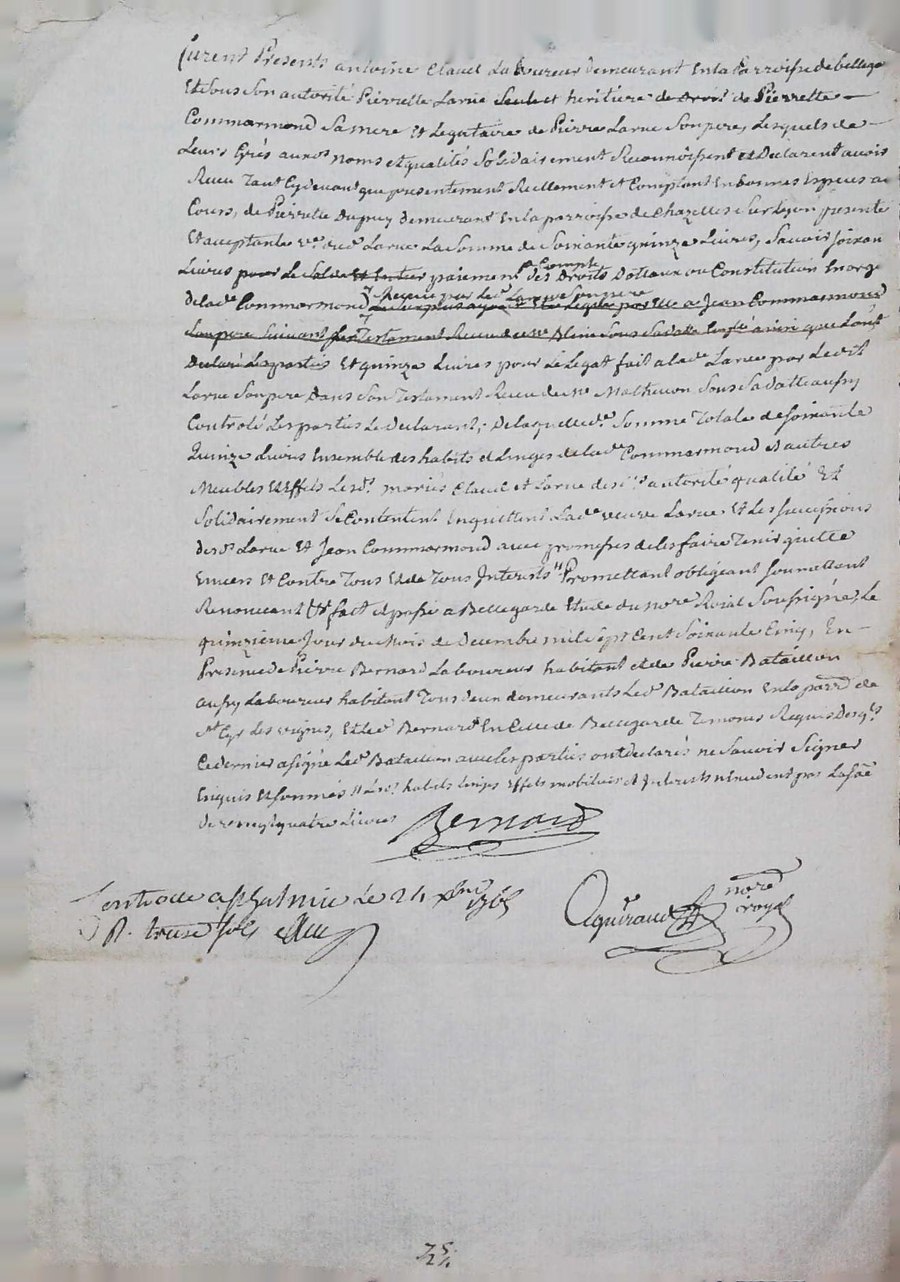 furent Presents antoine Clavel Laboureur demeurant En la Parroisse de bellega
Et Sous Son autorité Pierrette Larue Seule et heritiere de droit de Pierrette
Commarmond Sa mere Et Legataire de Pierre Larue Son pere, Lesquels de
Leurs Grés aux noms et qualités Solidairement Reconnoissent et Declarent avoir
Receu Tant Cydevant que presentement Reellement et Comptant En bonnes Especes au
Cours, de Pierrette Dupuy demeurant En la parroisse de Chazelles Sur Lyon presente
Et acceptante ve. dud. Larue La Somme de Soixante quinze Livres, Savoir soixan
Livres pour Le Solde Et Entier paiement a Compte des Droits Dotaux ou Constitution En arge
de lad. Commarmond Receue par Led. Larue Son pere a Jean Commarmond
Son pere Suivant Son Testament Receu de me. Sous Sa datte ainsi que L'ont
Declaré Les parties Et quinze Livres pour Le Legat fait a lad. Larue par Ledit
Larue Son pere Dans Son Testament Receu de me. Mathevon Sous Sa datte aussy
Controlé Les parties Le Declarant, De laquelle de. Somme Totale de Soixante
Quinze Livres Ensemble des habits et Linges de lad. Commarmond Et autres
Meubles Et Effets Lesd. mariés Clavel et Larue des. autorité qualité Et
Solidairement Se Contentent En quittent Lad. veuve Larue Et Les Successions
desd. Larue Et Jean Commarmond avec promesses de les faire Tenir quitte
Envers Et Contre Tous Et de Tous Interests " Promettant obligeant Soumettant
Renoncant &a. fait et passé a Bellegarde Etude du nore. Roial Soussigné, Le
quinzieme Jour du Mois de Decembre mil Sept Cent Soixante Cinq, En
Presence de Pierre Bernard Laboureur habitant et de Pierre Bataillon
aussy Laboureur habitant Tous deux demeurants Led. Bataillon En la parr. de
St. Cyr Les vignes, Et Led. Bernard En Celle de Bellegarde Temoins Requis Desqls.
Ce dernier a signé Led. Bataillon avec Les parties ont declarés ne Savoir Signer
Enquis Et Sommés // Lesd. habits Linges Effets mobiliers et Interests n'excedent pas La Some
de vengt quatre Livres
Bernard
Controlé a St Galmier Le 24 xbre 1765
R. treize sols
Aguiraud nore royal